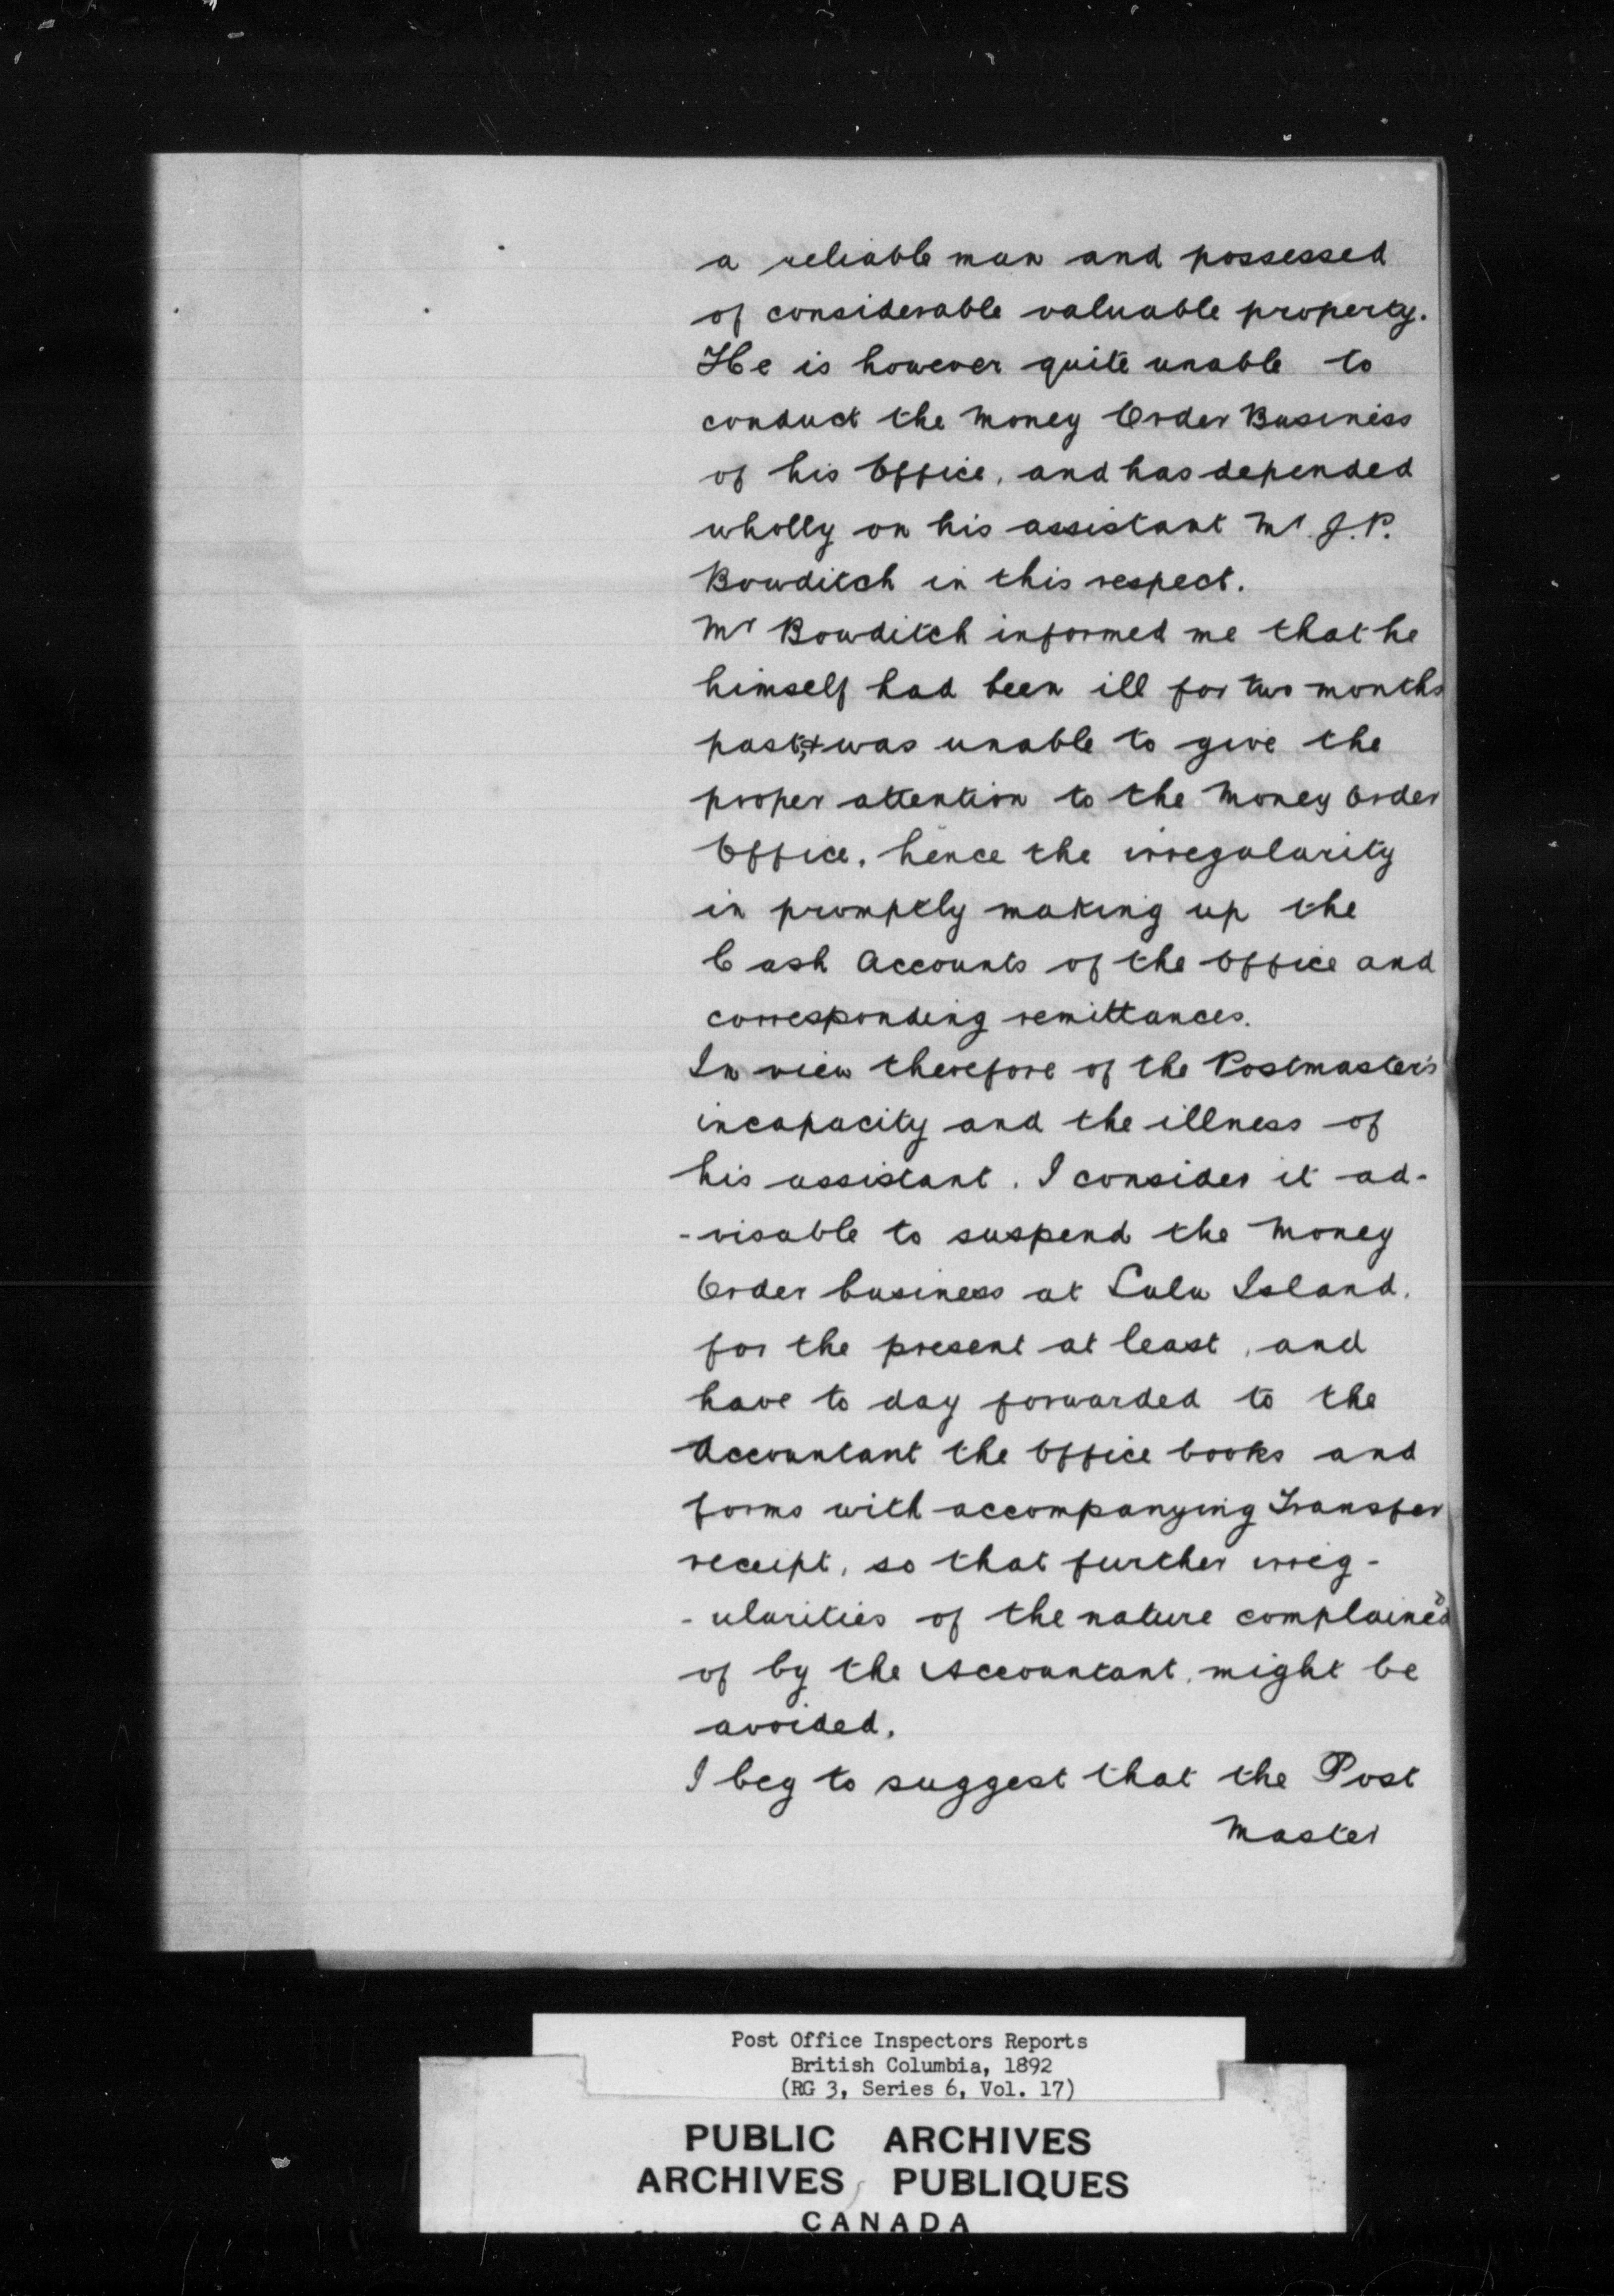 a reliable man and possessed
of considerable valuable property.
He is however quite unable to
conduct the Money Order Business
of his Office, and has depended
wholly on his assistant Mr. J.P.
Bowditch in this respect.
Mr Bowditch informed me that he
himself had been ill for two months
past, & was unable to give the
proper attention to the Money Order
Office, hence the irregularity
in promptly making up the
Cash Accounts of the Office and
corresponding remittances.
In view therefore of the Postmaster's
incapacity and the illness of
his assistant. I consider it ad-
-visable to suspend the Money
Order business at Lulu Island.
for the present at least, and
have to day forwarded to the
Accountant the Office books and
forms with accompanying Transfer
receipt, so that further irreg-
-ularities of the nature complained
of by the Accountant, might be
avoided.
I beg to suggest that the Post
Master
Post Office Inspectors Reports
British Columbia, 1892
(RG 3, Series 6, Vol. 17)
PUBLIC ARCHIVES
ARCHIVES PUBLIQUES
CANADA